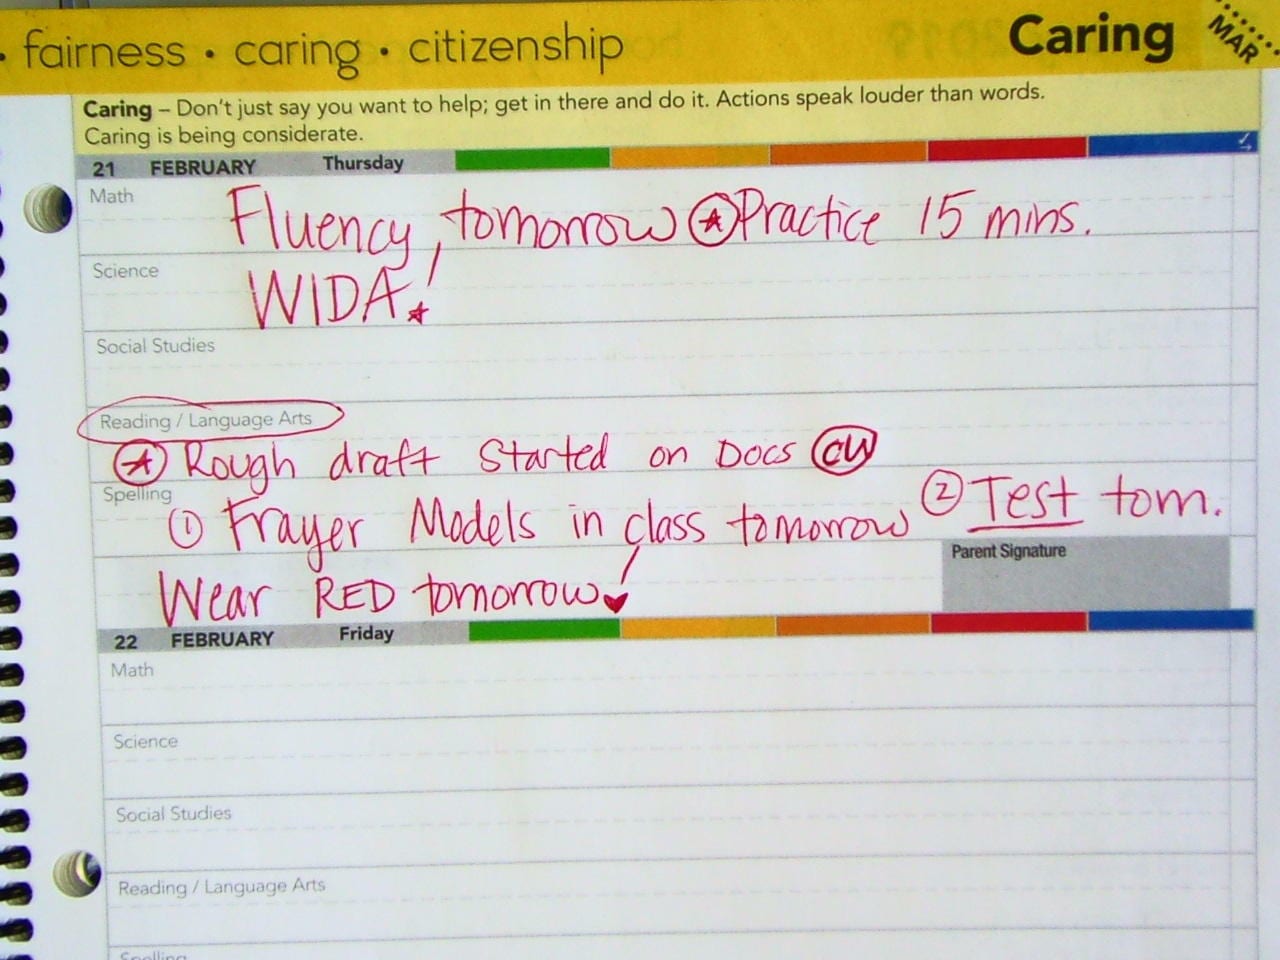 • fairness • caring • citizenship
Caring
MAR
Caring – Don't just say you want to help; get in there and do it. Actions speak louder than words.
Caring is being considerate.
21 FEBRUARY Thursday
Math
Fluency tomorrow Practice 15 mins.
Science
WIDA!
Social Studies
Reading / Language Arts
Rough draft started on Docs CW
Spelling
① Frayer Models in class tomorrow ② Test tom.
Parent Signature
Wear RED tomorrow!
22 FEBRUARY Friday
Math
Science
Social Studies
Reading / Language Arts
Spelling